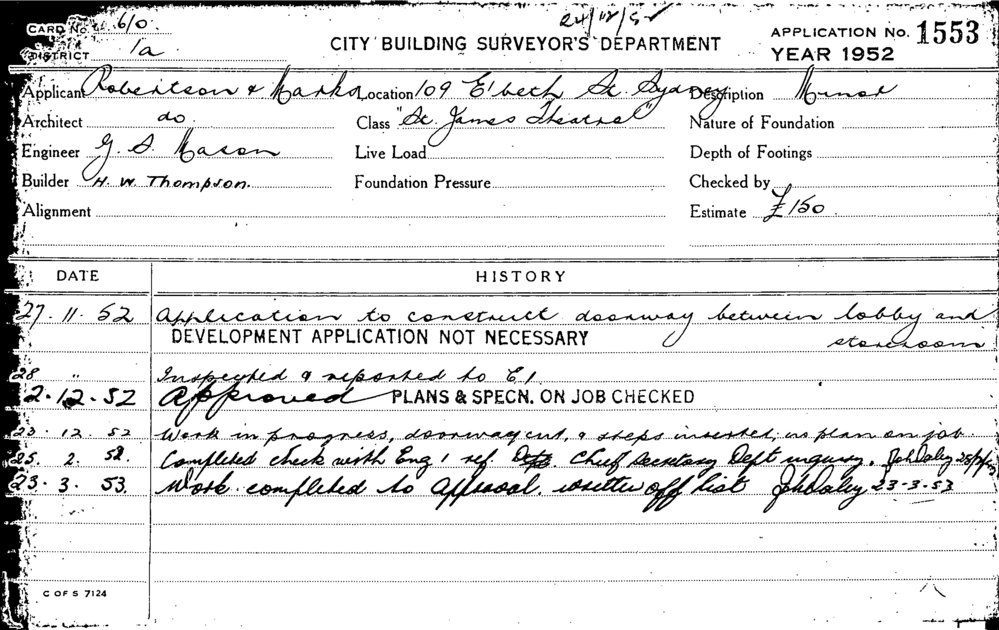 24/12/52
CARD No. 610.
CITY BUILDING SURVEYOR'S DEPARTMENT
APPLICATION No. 1553
DISTRICT 1a
YEAR 1952
Applicant Robertson & Marks Location 109 E'beth St. Sydney Description Minor
Architect do. Class "St. James Theatre" Nature of Foundation
Engineer G. S. Mason Live Load Depth of Footings
Builder H. W. Thompson. Foundation Pressure Checked by
Alignment Estimate £150
DATE HISTORY
27. 11. 52 Application to construct doorway between lobby and
DEVELOPMENT APPLICATION NOT NECESSARY storeroom
28 " Inspected & reported to E1.
2.12.52 Approved PLANS & SPECN. ON JOB CHECKED
23. 12. 52 Work in progress, doorway cut, & steps inserted, plan on job.
25. 2. 52. Completed check with Eng 1 ref Chief Secretary Dept inquiry. JohDaley 25/2/53
23. 3. 53. Work completed to approval. written off list JohDaley 23-3-53
C OF S 7124